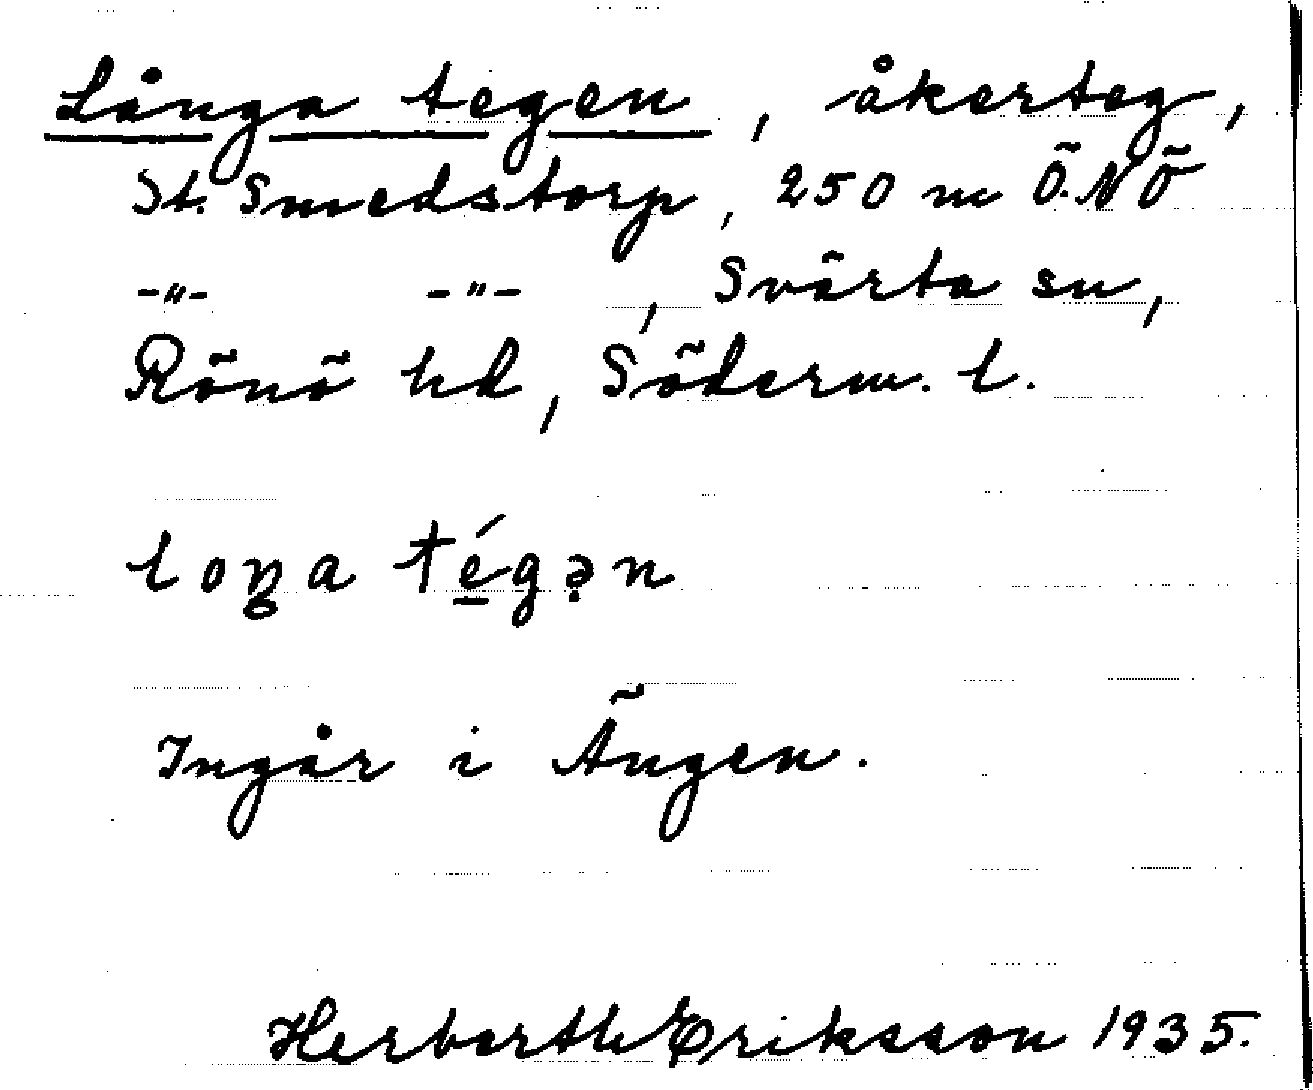 Långa tegen, åkerteg,
St. Smedstorp, 250 m Ö.NÖ
-"- -"-, Svärta sn,
Rönö hd, Söderm. l.
loŋa tég̣ən
Ingår i Ängen.
Herberth Eriksson 1935.